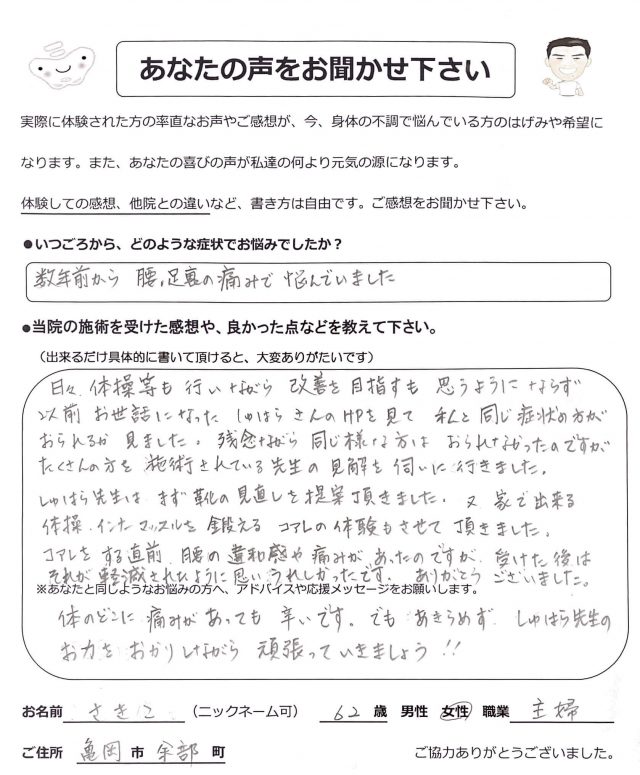 あなたの声をお聞かせ下さい
実際に体験された方の率直なお声やご感想が、今、身体の不調で悩んでいる方のはげみや希望に
なります。また、あなたの喜びの声が私達の何より元気の源になります。
体験しての感想、他院との違いなど、書き方は自由です。ご感想をお聞かせ下さい。
●いつごろから、どのような症状でお悩みでしたか？
数年前から 腰,足裏の痛みで 悩んでいました
●当院の施術を受けた感想や、良かった点などを教えて下さい。
（出来るだけ具体的に書いて頂けると、大変ありがたいです）
日々 体操等も 行いながら 改善を目指すも 思うように ならず
以前 お世話になった しゅはら さんのHPを見て 私と同じ症状の方が
おられるか 見ました。残念ながら 同じ様な方は おられなかったのですが
たくさんの方を 施術されている先生の見解を 伺いに行きました。
しゅはら先生は まず 靴の見直しを提案頂きました。又 家で出来る
体操、インナーマッスルを 鍛える コアレの体験もさせて 頂きました。
コアレをする直前 腰の違和感や痛みがあったのですが、受けた後は
それが軽減されたように思い うれしかったです。ありがとうございました。
※あなたと同じようなお悩みの方へ、アドバイスや応援メッセージをお願いします。
体のどこに 痛みがあっても 辛いです。でも あきらめず しゅはら先生の
お力を おかりしながら 頑張っていきましょう!!
お名前 さきこ （ニックネーム可） 62 歳 男性 女性 職業 主婦
ご住所 亀岡 市 余部 町 ご協力ありがとうございました。